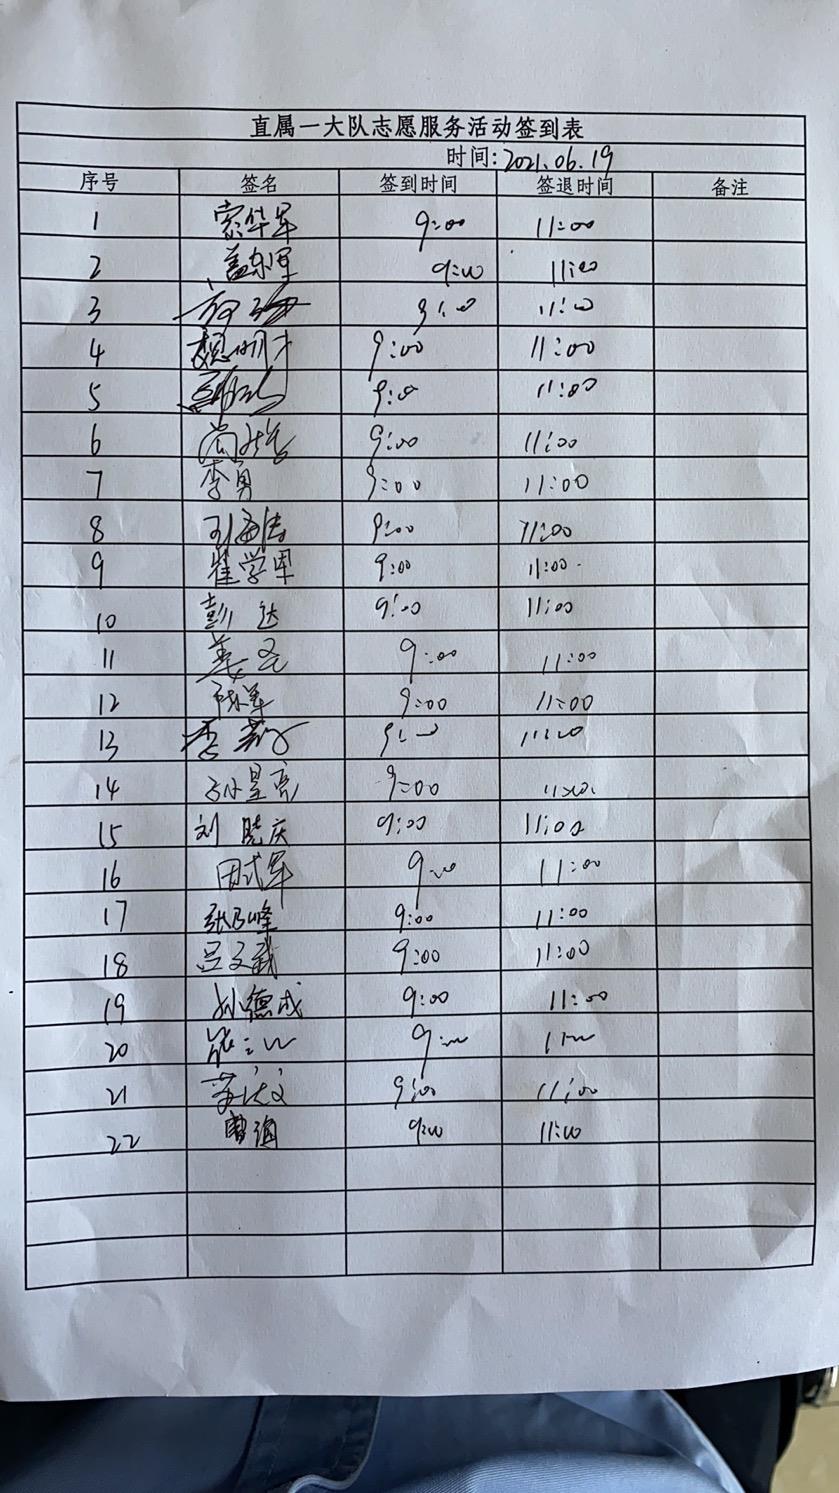 直属一大队志愿服务活动签到表
时间: 2021.06.19
序号 签名 签到时间 签退时间 备注
1 索华军 9:00 11:00
2 盖东军 9:00 11:00
3 9:00 11:00
4 魏明才 9:00 11:00
5 9:00 11:00
6 9:00 11:00
7 李勇 9:00 11:00
8 刘海涛 9:00 11:00
9 崔学思 9:00 11:00
10 彭达 9:00 11:00
11 9:00 11:00
12 陈军 9:00 11:00
13 李 9:00 11:00
14 孙显亮 9:00 11:00
15 刘晓庆 9:00 11:00
16 田式军 9:00 11:00
17 张乃峰 9:00 11:00
18 吕文武 9:00 11:00
19 孙德成 9:00 11:00
20 9:00 11:00
21 9:00 11:00
22 曹 9:00 11:00